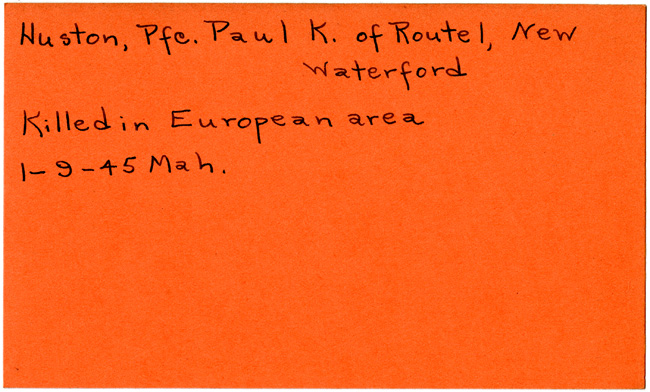 Huston, Pfc. Paul K. of Route 1, New
Waterford
Killed in European area
1-9-45 Mah.